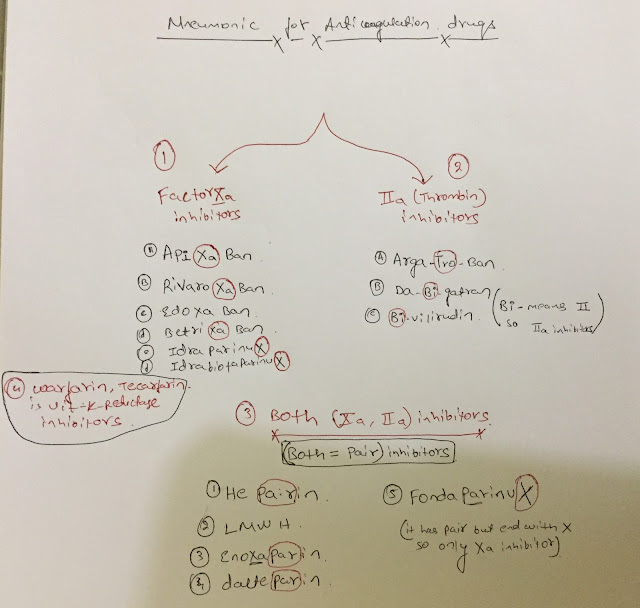 Mneumonic for Anticoagulation drugs
① 
Factor Xa
inhibitors
Ⓐ API Xa Ban
Ⓑ Rivaro Xa Ban
ⓒ Edo Xa Ban
ⓓ Betri Xa Ban
ⓔ Idraparinu X
ⓕ Idrabiotaparinu X
②
IIa (Thrombin)
inhibitors
Ⓐ Arga-Tro-Ban
Ⓑ Da-Bi-gatran
ⓒ Bi-vilirudin
(Bi-means II
so
IIa inhibitors)
④ warfarin, Tecarfarin
is vit-K-reductase
inhibitors.
③ Both (Xa, IIa) inhibitors
(Both = Pair) inhibitors
① He pairin
② LMWH.
③ Enoxaparin
④ dalteparin
⑤ Fondaparinu X
(it has pair but end with X
so only Xa inhibitor)